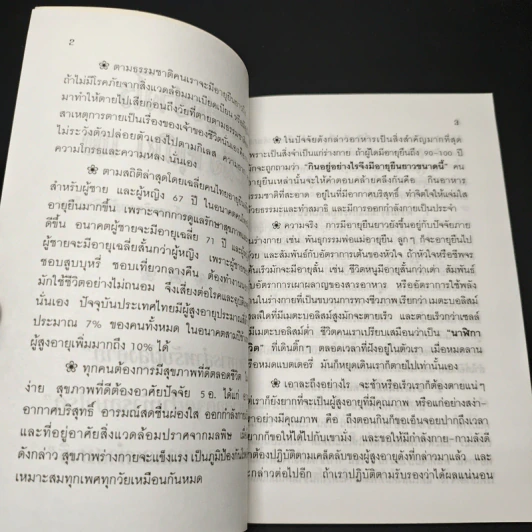 2
❀ ตามธรรมชาติคนเราจะมีอายุยืน
ถ้าไม่มีโรคภัยจากสิ่งแวดล้อมมาเบียดเบียน
มาทำให้ตายไปเสียก่อนถึงวัยที่ตายตามธรรม
สาเหตุการตายเป็นเรื่องของเจ้าของชีวิตนั่นเอง
ไม่ระวังตัวปล่อยตัวเองไปตามกิเลส ความ
ความโกรธและความหลง นั่นเอง
❀ ตามสถิติล่าสุดโดยเฉลี่ยคนไทยอายุ
สำหรับผู้ชาย และผู้หญิง 67 ปี ในอนาคต
อายุยืนมากขึ้น เพราะจากการดูแลรักษาสุขภาพ
ดีขึ้น อนาคตผู้ชายจะมีอายุเฉลี่ย 71 ปี และ
ผู้ชายจะมีอายุเฉลี่ยสั้นกว่าผู้หญิง เพราะผู้ชาย
ชอบสูบบุหรี่ ชอบเที่ยวกลางคืน ต้องทำงาน
มักใช้ชีวิตอย่างไม่ถนอม จึงเสี่ยงต่อโรคและ
นั่นเอง ปัจจุบันประเทศไทยมีผู้สูงอายุประมาณ
ประมาณ 7% ของคนทั้งหมด ในอนาคต
ผู้สูงอายุเพิ่มมากถึง 10% ได้
❀ ทุกคนต้องการมีสุขภาพที่ดีตลอดชีวิต
ง่าย สุขภาพที่ดีต้องอาศัยปัจจัย 5 อ. ได้แก่
อากาศบริสุทธิ์ อารมณ์สดชื่นผ่องใส ออกกำลังกาย
และที่อยู่อาศัยสิ่งแวดล้อมปราศจากมลพิษ
ดังกล่าว สุขภาพร่างกายจะแข็งแรง เป็นภูมิป้องกัน
เหมาะสมทุกเพศทุกวัยเหมือนกันหมด
3
❀ ในปัจจัยดังกล่าวอาหารเป็นสิ่งสำคัญมากที่สุด
เพราะเป็นสิ่งจำเป็นแก่ร่างกาย ถ้าผู้ใดมีอายุยืนถึง 90-100 ปี
จะถูกถามว่า "กินอยู่อย่างไรจึงมีอายุยืนยาวขนาดนี้" คน
อายุยืนเหล่านั้นจะให้คำตอบคล้ายคลึงกันคือ กินอาหาร
ธรรมชาติที่สะอาด อยู่ในที่มีอากาศบริสุทธิ์ ทำจิตใจให้แจ่มใส
ด้วยธรรมะและทำสมาธิ และมีการออกกำลังกายเป็นประจำ
❀ ความจริง การมีอายุยืนยาวยังขึ้นอยู่กับปัจจัยภาย
ในร่างกาย เช่น พันธุกรรมพ่อแม่อายุยืน ลูกๆ ก็จะอายุยืนไป
ด้วย และสัมพันธ์กับอัตราการเต้นของหัวใจ ถ้าหัวใจหรือชีพจร
เต้นเร็วมักจะมีอายุสั้น เช่น ชีวิตหนูมีอายุสั้นกว่าเต่า สัมพันธ์
กับอัตราการเผาผลาญของสารอาหาร หรืออัตราการใช้พลัง
งานในร่างกายที่เป็นขบวนการทางชีวภาพ เรียกว่า เมตะบอลิสม์
ชีวิตใดที่มีเมตะบอลิสม์สูงมักจะตายเร็ว และตายเร็วกว่าเซลล์
ที่มีเมตะบอลิสม์ต่ำ ชีวิตคนเราเปรียบเสมือนว่าเป็น "นาฬิกา
ชีวิต" ที่เดินติ๊กๆ ตลอดเวลาที่ฝังอยู่ในตัวเรา เมื่อหมดลาน
หรือหมดแบตเตอรี่ มันก็หยุดเดินเราก็ตายไปเท่านั้นเอง
❀ เอาละถึงอย่างไร จะช้าหรือเร็วเราก็ต้องตายแน่ๆ
แต่เราก็ยังยากที่จะเป็นผู้สูงอายุที่มีคุณภาพ หรือแก่อย่างสง่า
อย่างมีคุณภาพ คือ ถึงตอนกินก็ขอเอ็นจอยปากถึงเวลา
ยากก็ขอให้ได้ไปกับเขามั่ง และขอให้มีกำลังกาย-กามลังดี
ก็ต้องปฏิบัติตามเคล็ดลับของผู้สูงอายุดังที่กล่าวมาแล้ว และ
จะกล่าวต่อไปอีก ถ้าเราปฏิบัติตามรับรองว่าได้ผลแน่นอน